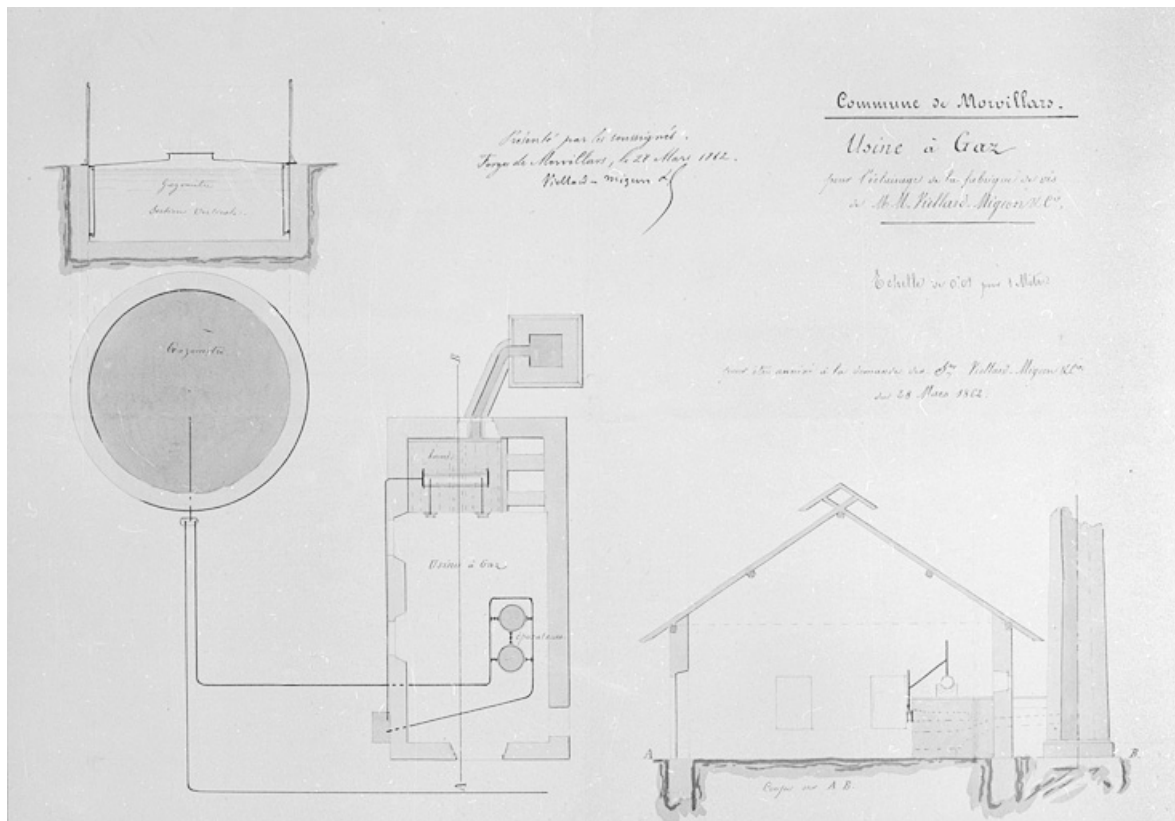 Commune de Morvillars.
Usine à Gaz
pour l'éclairage de la fabrique de vis
de M.M. Viellard-Migeon & Cie.
Echelle de 0m01 pour 1 Mètre
Présenté par les soussignés.
Forges de Morvillars, le 28 Mars 1862.
Viellard-Migeon
pour être annexé à la demande des Srs Viellard-Migeon & Cie
du 28 Mars 1862.
Gazomètre
Section verticale
Gazomètre
B
Four
Usine à Gaz
épurateurs
A
A
B.
Coupe sur A B.